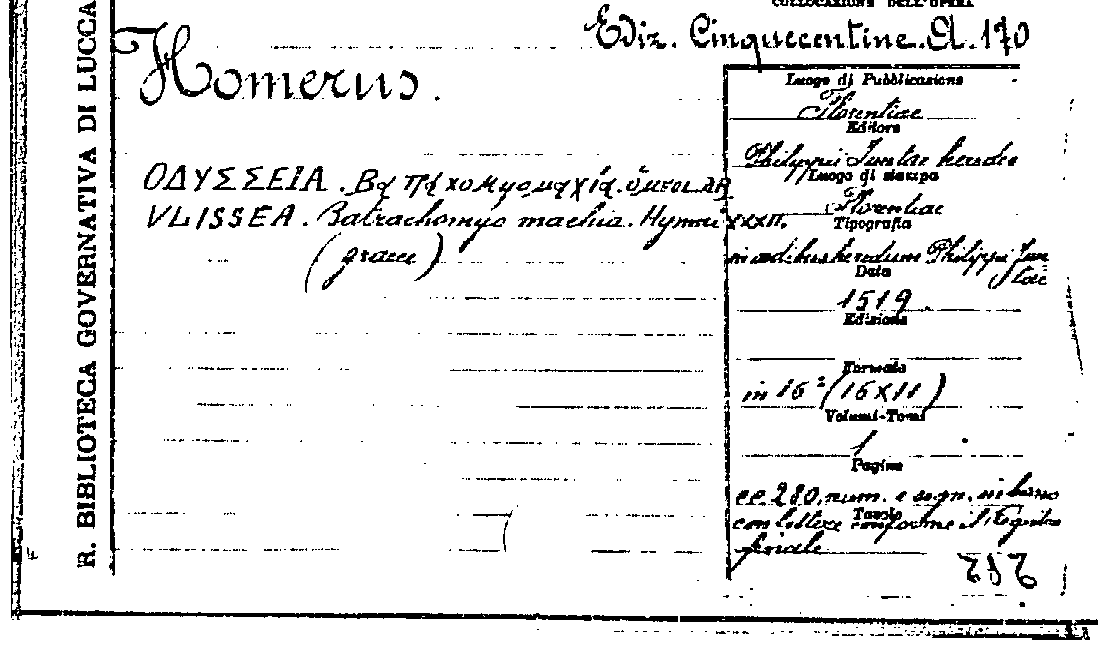 COLLOCAZIONE DELL'OPERA
Ediz. Cinquecentine. A. 170
R. BIBLIOTECA GOVERNATIVA DI LUCCA
Homerus.
ΟΔΥΣΣΕΙΑ.
VLISSEA. Batrachomyo machia. Hymni XXXII.
(graece)
Luogo di Pubblicazione
Florentiae
Editore
Philippi Iuntae heredes
Luogo di stampa
Florentiae
Tipografia
in aedibus heredum Philippi Iun
tae
Data
1519
Edizione
Formato
in 16° (16X11)
Volumi-Tomi
1
Pagine
cc 280. num. e segn. in basso
Tavole
con lettere conforme il Registro
finale